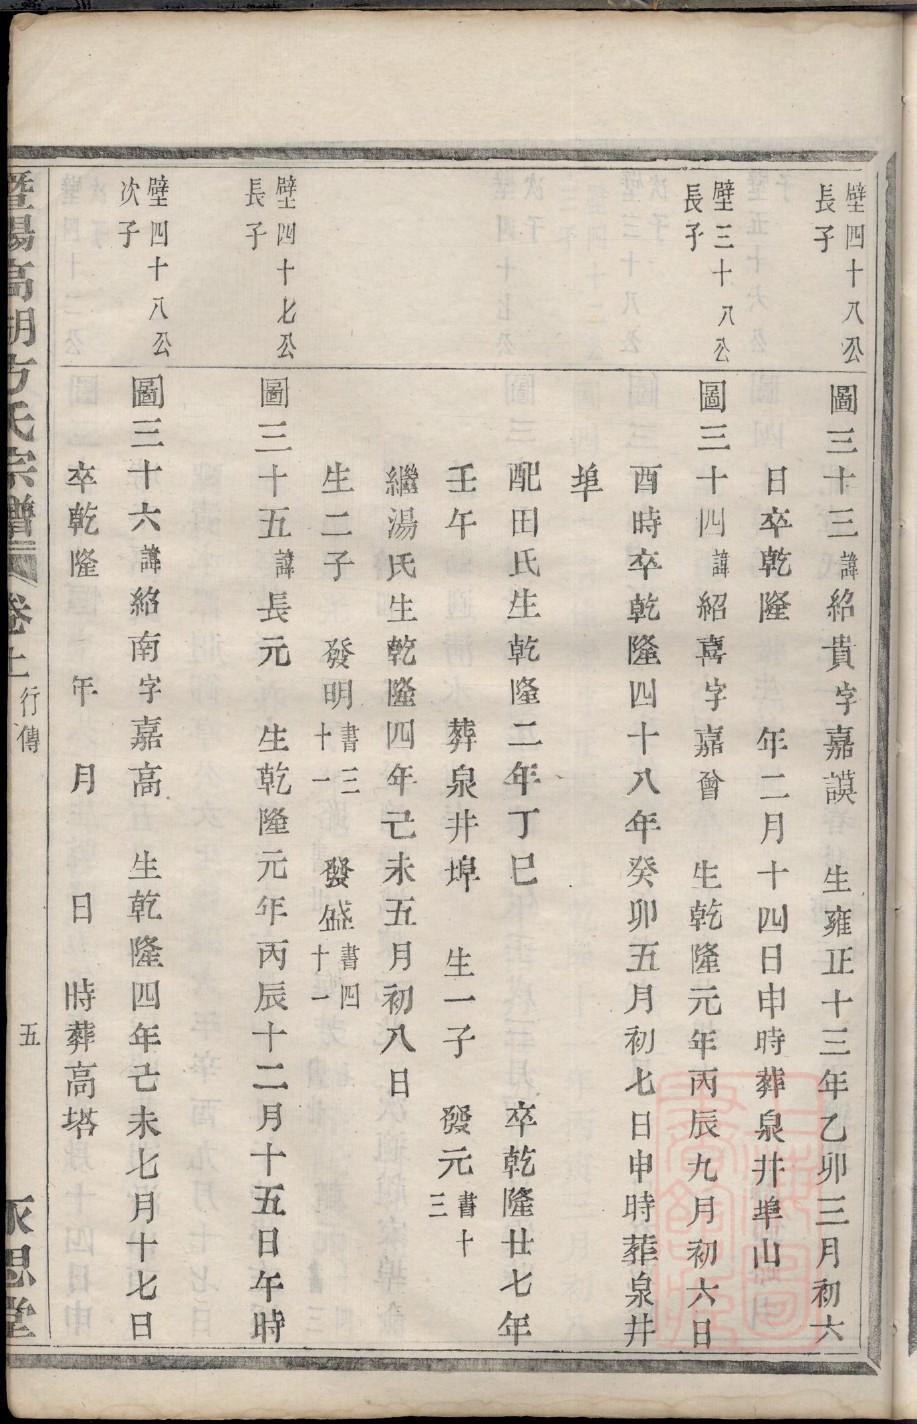 壁四十八公
長子
圖三十三諱紹貴字嘉謨　生雍正十三年乙卯三月初六
日卒乾隆　年二月十四日申時葬泉井埠山
壁三十八公
長子
圖三十四諱紹喜字嘉會　生乾隆元年丙辰九月初六日
酉時卒乾隆四十八年癸卯五月初七日申時葬泉井
埠
配田氏生乾隆二年丁巳　卒乾隆廿七年
壬午　葬泉井埠　生一子　發元書十三
繼湯氏生乾隆四年己未五月初八日
生二子　發明書三十一　發盛書四十一
壁四十七公
長子
圖三十五諱長元　生乾隆元年丙辰十二月十五日午時
壁四十八公
次子
圖三十六諱紹南字嘉高　生乾隆四年己未七月十七日
卒乾隆　年　月　日　時葬高塔
暨陽高湖方氏宗譜　卷上　行傳　五　永思堂